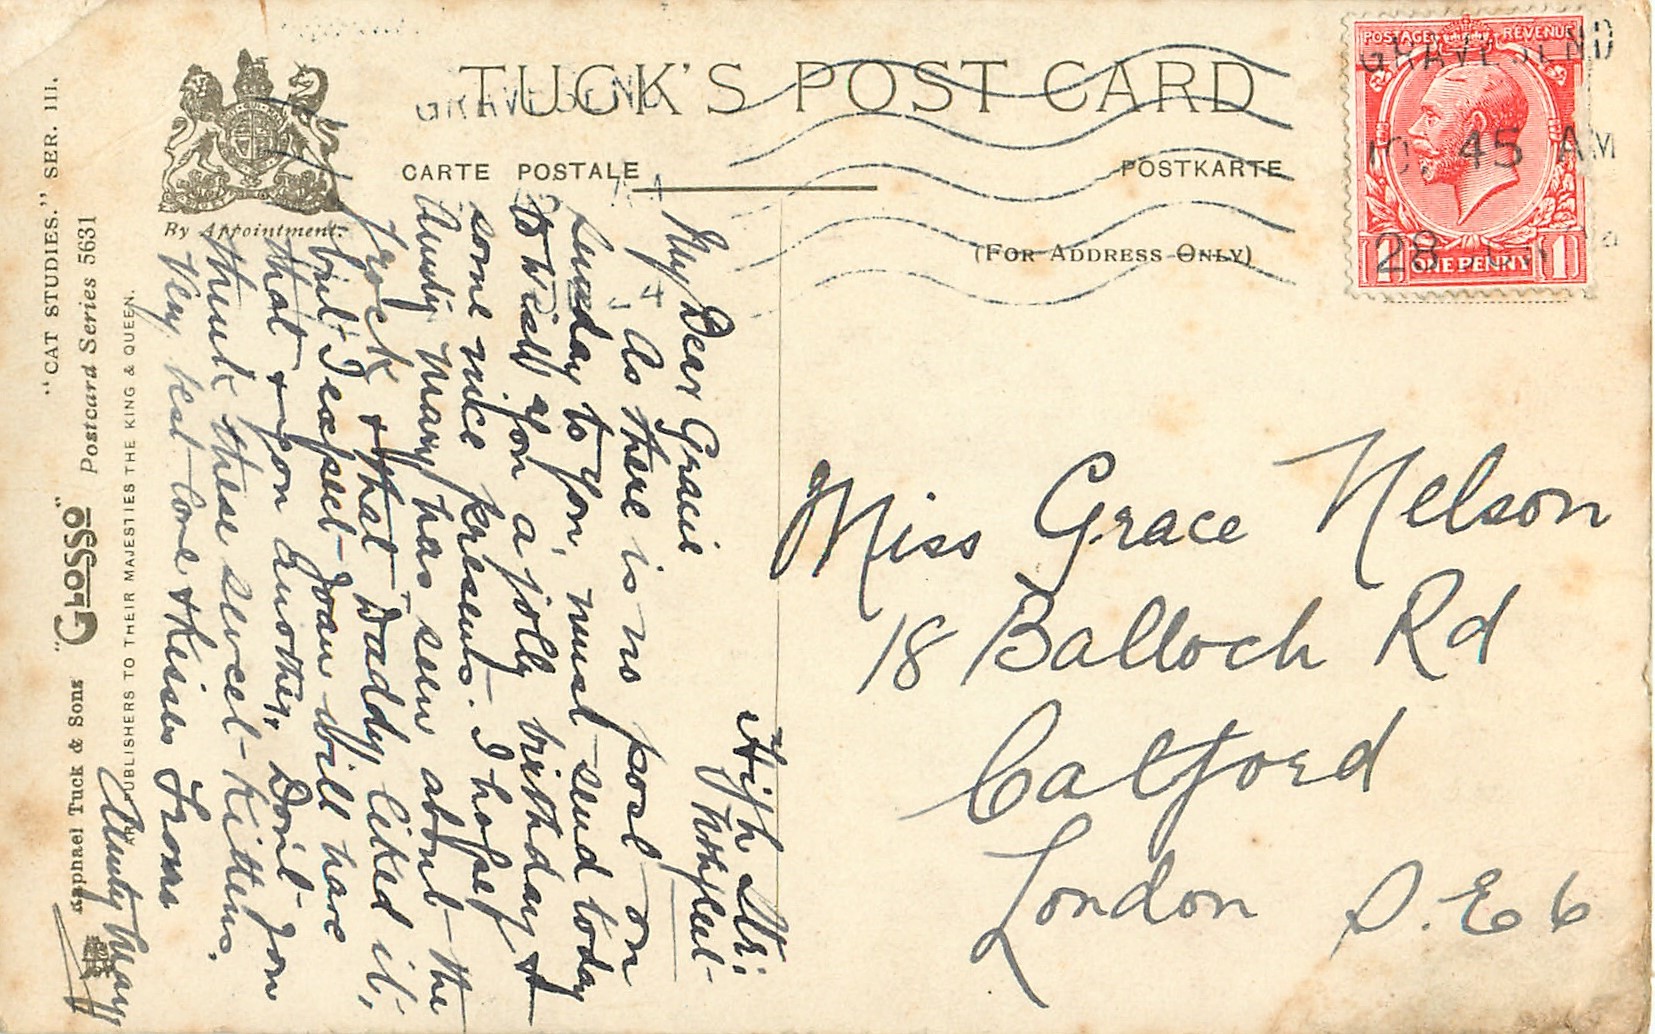 TUCK'S POST CARD
CARTE POSTALE
POSTKARTE
(FOR ADDRESS ONLY)
By Appointment.
"CAT STUDIES." SER. III.
Postcard Series 5631
Raphael Tuck & Sons "GLOSSO"
PUBLISHERS TO THEIR MAJESTIES THE KING & QUEEN.
POSTAGE REVENUE
1 ONE PENNY 1
GRAVESEND
10. 45 AM
28
GRAVESEND
High Str:
Northfleet
My Dear Gracie
As there is no post on
Sunday to you, must send today
to wish you a jolly birthday &
some nice presents. I hope
Aunty Mary has seen about the
frock & that Daddy liked it,
but I expect Joan will have
that & you another, Don't you
think these sweet kittens.
Very best love & kisses From
Aunty Mary
Miss Grace Nelson
18 Balloch Rd
Catford
London S.E 6